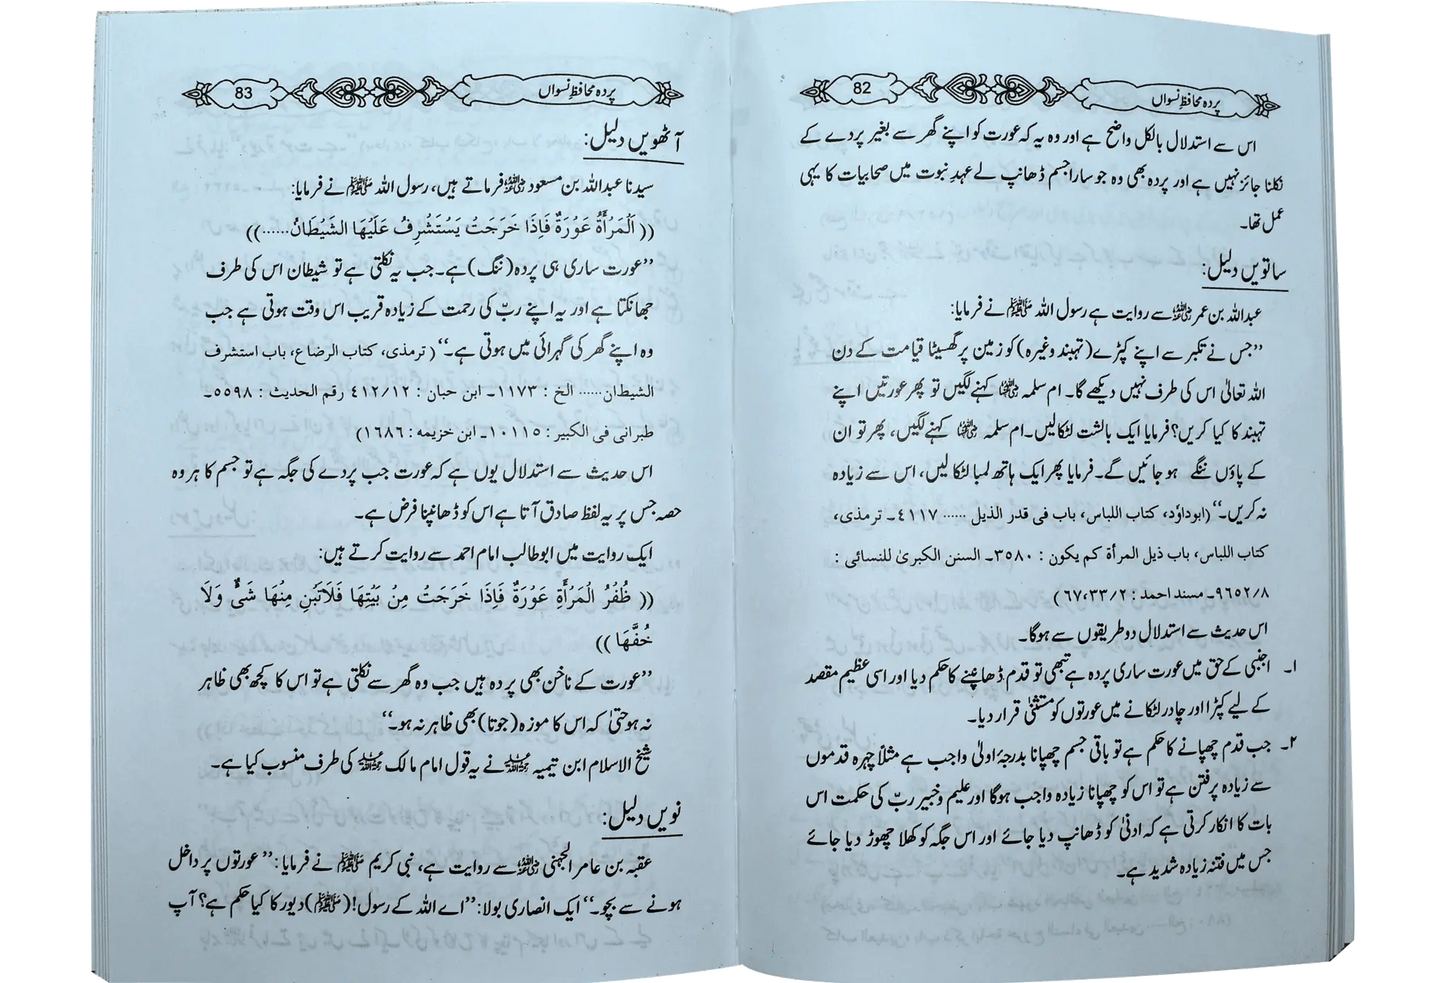 پردہ محافظِ نسواں
82
اس سے استدلال بالکل واضح ہے اور وہ یہ کہ عورت کو اپنے گھر سے بغیر پردے کے
نکلنا جائز نہیں ہے اور پردہ بھی وہ جو سارا جسم ڈھانپ لے عہدِ نبوت میں صحابیات کا یہی
عمل تھا۔
ساتویں دلیل:
عبداللہ بن عمر رضی اللہ عنہ سے روایت ہے رسول اللہ ﷺ نے فرمایا:
’’جس نے تکبر سے اپنے کپڑے (تہبند وغیرہ) کو زمین پر گھسیٹا قیامت کے دن
اللہ تعالیٰ اس کی طرف نہیں دیکھے گا۔ ام سلمہ رضی اللہ عنہا کہنے لگیں تو پھر عورتیں اپنے
تہبند کا کیا کریں؟ فرمایا ایک بالشت لٹکالیں۔ ام سلمہ رضی اللہ عنہا کہنے لگیں، پھر تو ان
کے پاؤں ننگے ہو جائیں گے۔ فرمایا پھر ایک ہاتھ لمبا لٹکا لیں، اس سے زیادہ
نہ کریں۔‘‘ (ابوداؤد، کتاب اللباس، باب فی قدر الذیل ...... ٤١١٧۔ ترمذی،
کتاب اللباس، باب ذیل المرأة کم یکون : ٣٥٨٠۔ السنن الکبریٰ للنسائی :
٩٦٥٢/٨۔ مسند احمد : ٦٧،٣٣/٢)
اس حدیث سے استدلال دو طریقوں سے ہوگا۔
۱۔ اجنبی کے حق میں عورت ساری پردہ ہے تبھی تو قدم ڈھانپنے کا حکم دیا اور اسی عظیم مقصد
کے لیے کپڑا اور چادر لٹکانے میں عورتوں کو مستثنیٰ قرار دیا۔
۲۔ جب قدم چھپانے کا حکم ہے تو باقی جسم چھپانا بدرجۂ اولیٰ واجب ہے مثلاً چہرہ قدموں
سے زیادہ پرفتن ہے تو اس کو چھپانا زیادہ واجب ہوگا اور علیم وخبیر ربّ کی حکمت اس
بات کا انکار کرتی ہے کہ ادنیٰ کو ڈھانپ دیا جائے اور اس جگہ کو کھلا چھوڑ دیا جائے
جس میں فتنہ زیادہ شدید ہے۔
پردہ محافظِ نسواں
83
آٹھویں دلیل:
سیدنا عبداللہ بن مسعود رضی اللہ عنہ فرماتے ہیں، رسول اللہ ﷺ نے فرمایا:
(( اَلْمَرْأَةُ عَوْرَةٌ فَاِذَا خَرَجَتْ يَسْتَشْرِفُ عَلَيْهَا الشَّيْطَانُ......))
’’عورت ساری ہی پردہ (ننگ) ہے۔ جب یہ نکلتی ہے تو شیطان اس کی طرف
جھانکتا ہے اور یہ اپنے ربّ کی رحمت کے زیادہ قریب اس وقت ہوتی ہے جب
وہ اپنے گھر کی گہرائی میں ہوتی ہے۔‘‘ (ترمذی، کتاب الرضاع، باب استشرف
الشیطان...... الخ : ١١٧٣۔ ابن حبان : ٤١٢/١٢ رقم الحدیث : ٥٥٩٨۔
طبرانی فی الکبیر : ١٠١١٥۔ ابن خزیمہ : ١٦٨٦)
اس حدیث سے استدلال یوں ہے کہ عورت جب پردے کی جگہ ہے تو جسم کا ہر وہ
حصہ جس پر یہ لفظ صادق آتا ہے اس کو ڈھانپنا فرض ہے۔
ایک روایت میں ابوطالب امام احمد سے روایت کرتے ہیں:
(( ظُفُرُ الْمَرْأَةِ عَوْرَةٌ فَاِذَا خَرَجَتْ مِنْ بَيْتِهَا فَلَاتَبِنْ مِنْهَا شَيْءٌ وَلَا
خُفَّهَا ))
’’عورت کے ناخن بھی پردہ ہیں جب وہ گھر سے نکلتی ہے تو اس کا کچھ بھی ظاہر
نہ ہو حتیٰ کہ اس کا موزہ (جوتا) بھی ظاہر نہ ہو۔‘‘
شیخ الاسلام ابن تیمیہ رحمہ اللہ نے یہ قول امام مالک رحمہ اللہ کی طرف منسوب کیا ہے۔
نویں دلیل:
عقبہ بن عامر الجہنی رضی اللہ عنہ سے روایت ہے، نبی کریم ﷺ نے فرمایا: ’’عورتوں پر داخل
ہونے سے بچو۔‘‘ ایک انصاری بولا: ’’اے اللہ کے رسول! (ﷺ) دیور کا کیا حکم ہے؟ آپ